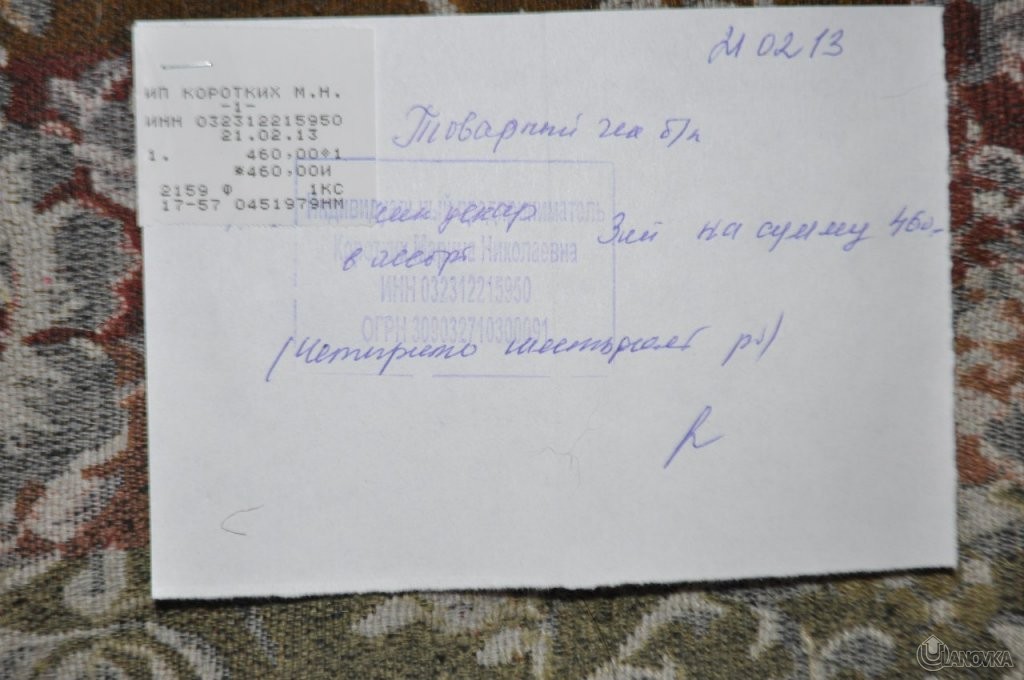 21 02 13
ИП КОРОТКИХ М.Н.
-1-
ИНН 032312215950
21.02.13
1. 460,00*1
*460,00И
2159 Ф 1КС
17-57 0451979НМ
Товарный чек б/н
Индивидуальный предприниматель
Коротких Марина Николаевна
ИНН 032312215950
ОГРН 309032710300091
в ассорт 3 на сумму 460-
(Четыресто шестьдесят рб)
ULANOVKA